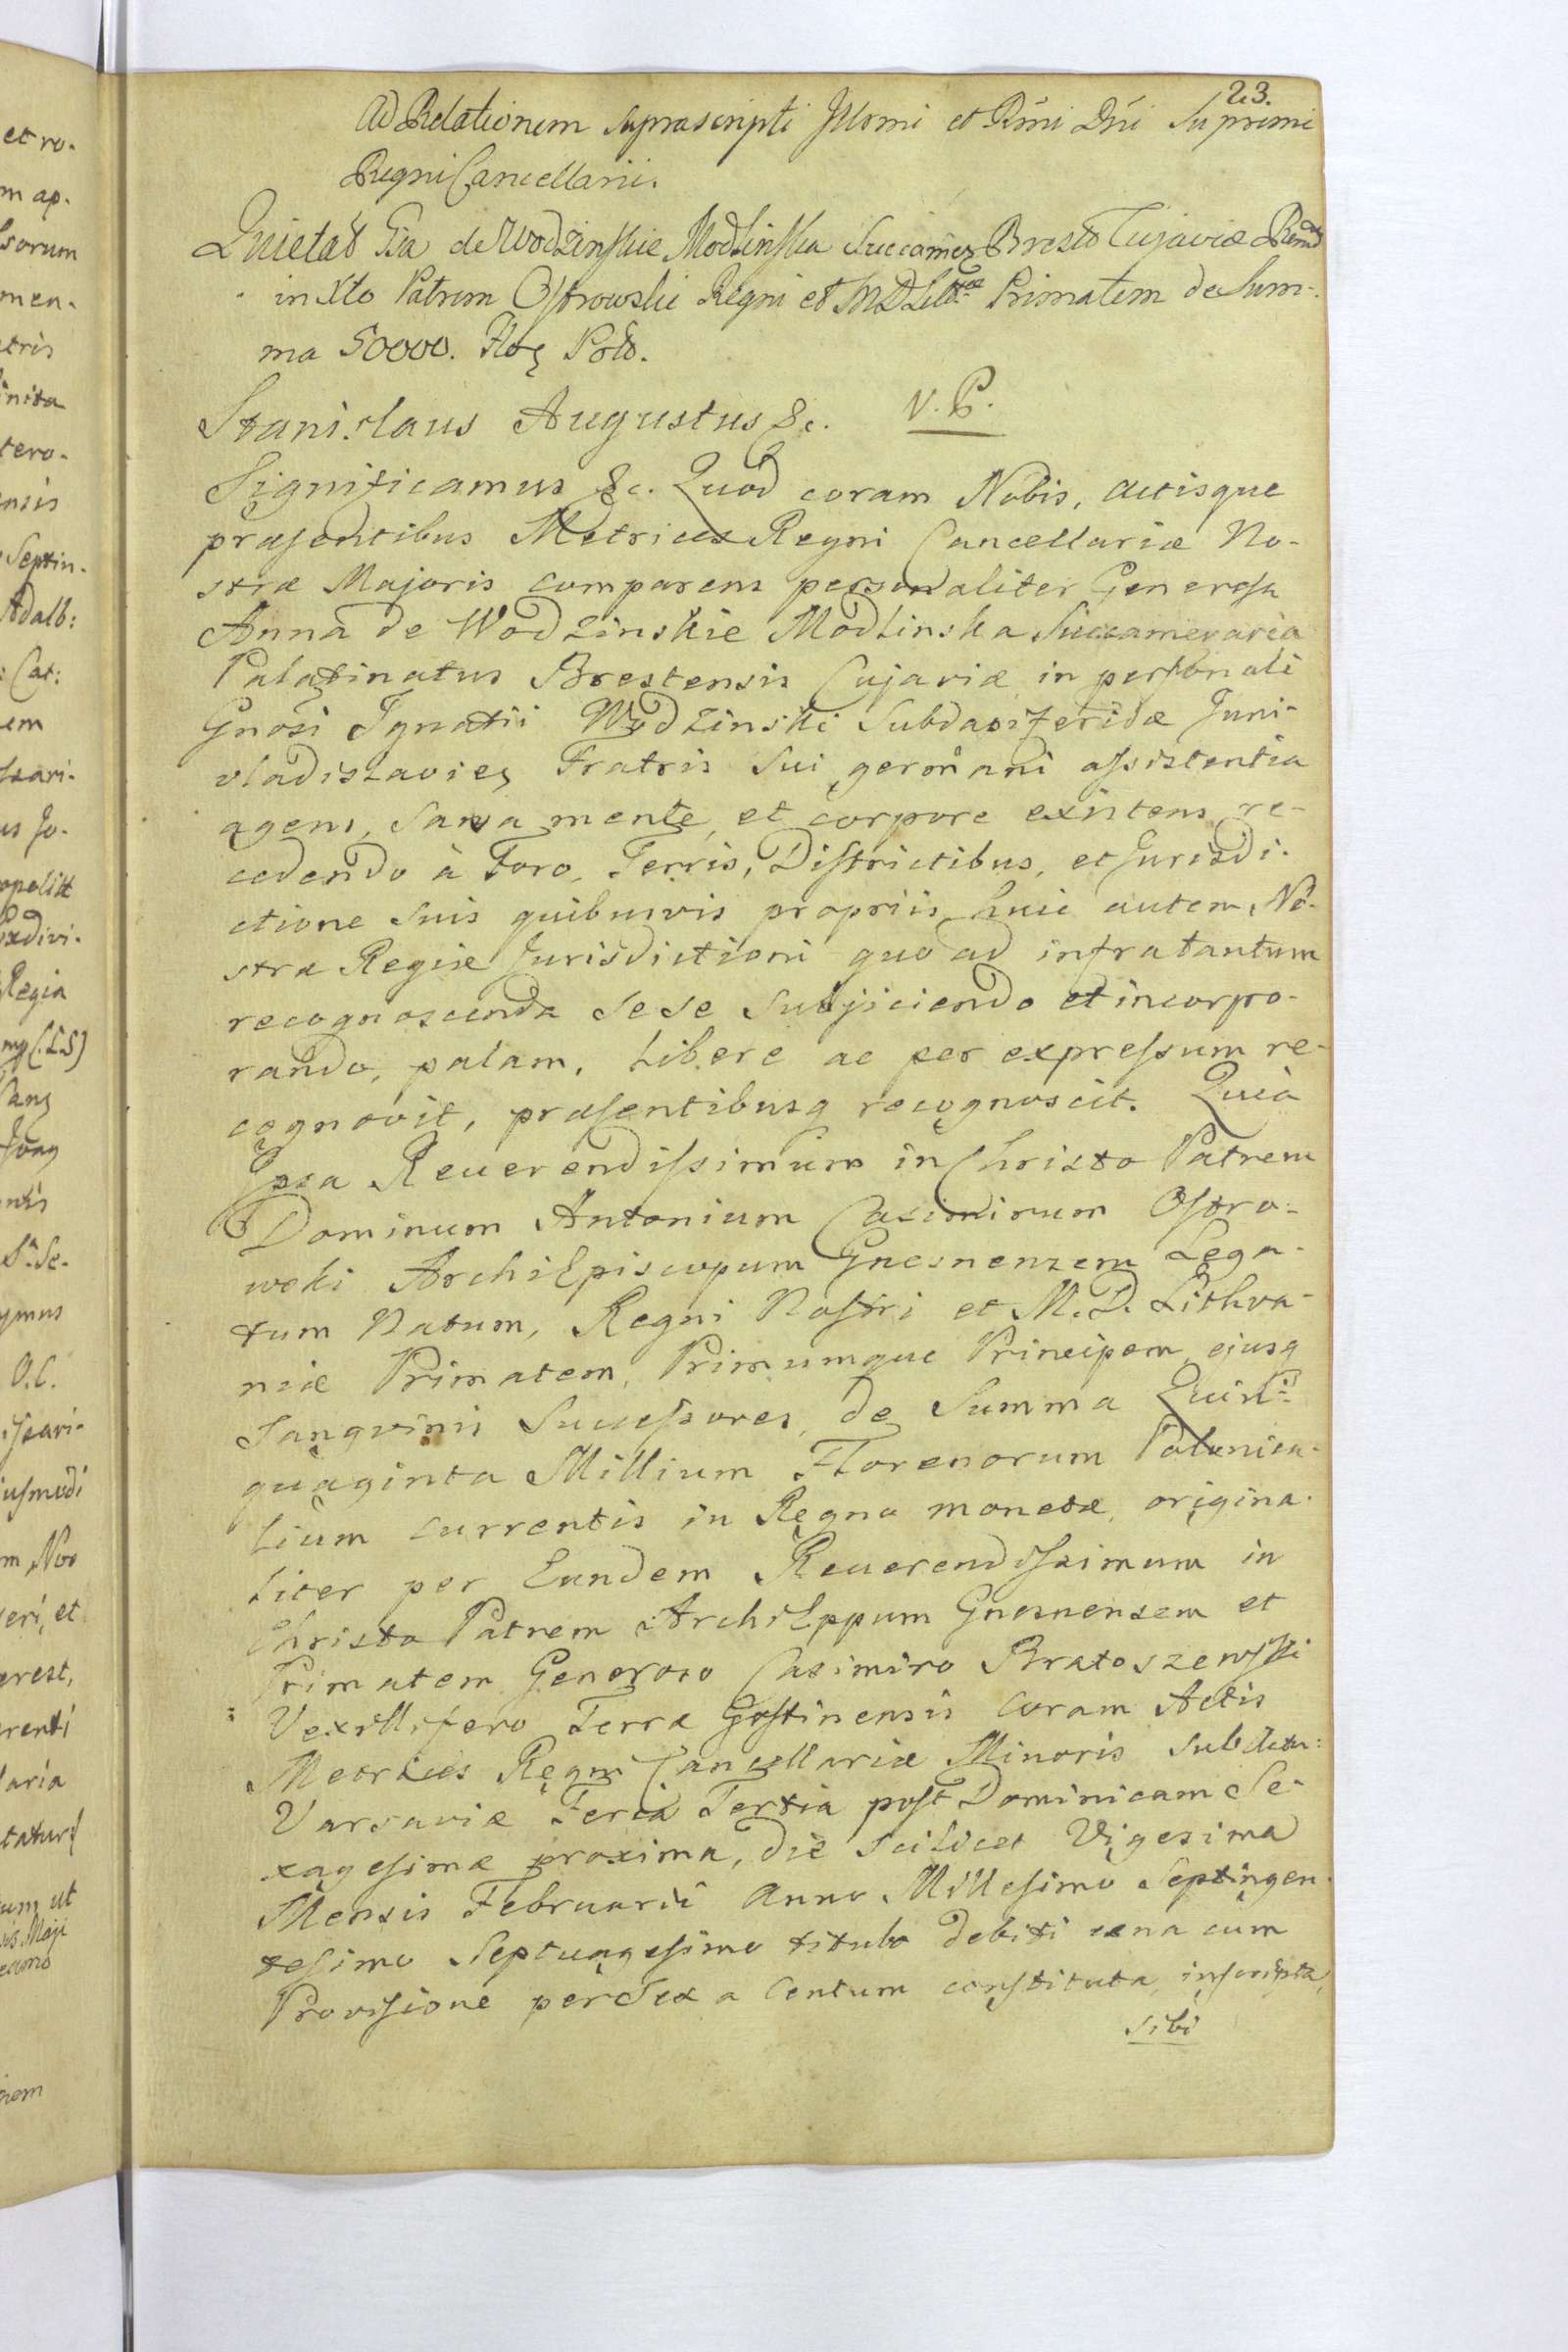 23.
Ad Relationem suprascripti Illsmi et Rmi Dni Supremi
Regni Cancellarii.
Quietat Gsa de Wodzinskie Modlinska Succamerz Brest Cujaviæ Rend
in Xto Patrem Ostrowski Regni et M D Litt Primatem de Sum-
ma 50000. Flor Pol.
Stanislaus Augustus &c. V. P.
Significamus &c. Quod coram Nobis, Actisque
præsentibus Metrices Regni Cancellariæ No-
stræ Majoris comparens personaliter Generosa
Anna de Wodzinskie Modlinska Succameraria
Palatinatus Brestensis Cujaviæ in personali
Gnosi Ignatii Wodzinski Subdapiferidæ Juni-
vladislavien Fratris sui germani assistentia
agens, sana mente, et corpore existens re-
cedendo à Foro, Terris, Districtibus, et Jurisdi-
ctione suis quibusvis propriis huic autem No-
stræ Regiæ Jurisdictioni quo ad infra tantum
recognoscenda sese subjiciendo et incorpo-
rando, palam, libere ac per expressum re-
cognovit, præsentibusq recognoscit. Quia
Ipsa Reverendissimum in Christo Patrem
Dominum Antonium Casimirum Ostro-
wski Archi Episcopum Gnesnensem Lega-
tum Natum, Regni Nostri et M. D. Lithva-
niæ Primatem, Primumque Principem, ejusq
sangvinis Successores, de Summa Quin-
quaginta Millium Florenorum Polonica-
lium currentis in Regno monetæ, origina-
liter per Eundem Reverendissimum in
Christo Patrem Archi Eppum Gnesnensem et
Primatem Generoso Casimiro Bratoszewski
Vexillifero Terræ Gostinensis coram Actis
Metrices Regni Cancellariæ Minoris sub
Varsaviæ Feria Tertia post Dominicam Se-
xagesimæ proxima, die scilicet Vigesima
Mensis Februarii Anno Millesimo Septingen-
tesimo Septuagesimo titulo debiti una cum
Provisione per Sex a Centum constituta, inscripta,
sibi
et ro.
m ap.
sorum
men.
tris
nita
tero.
ensis
Septin.
Adalb:
Cat:
em
us Jo-
divi.
Regia
mp (:L.S)
O.C.
m Nos
eri, et
erest,
renti
laria
tatur
um ut